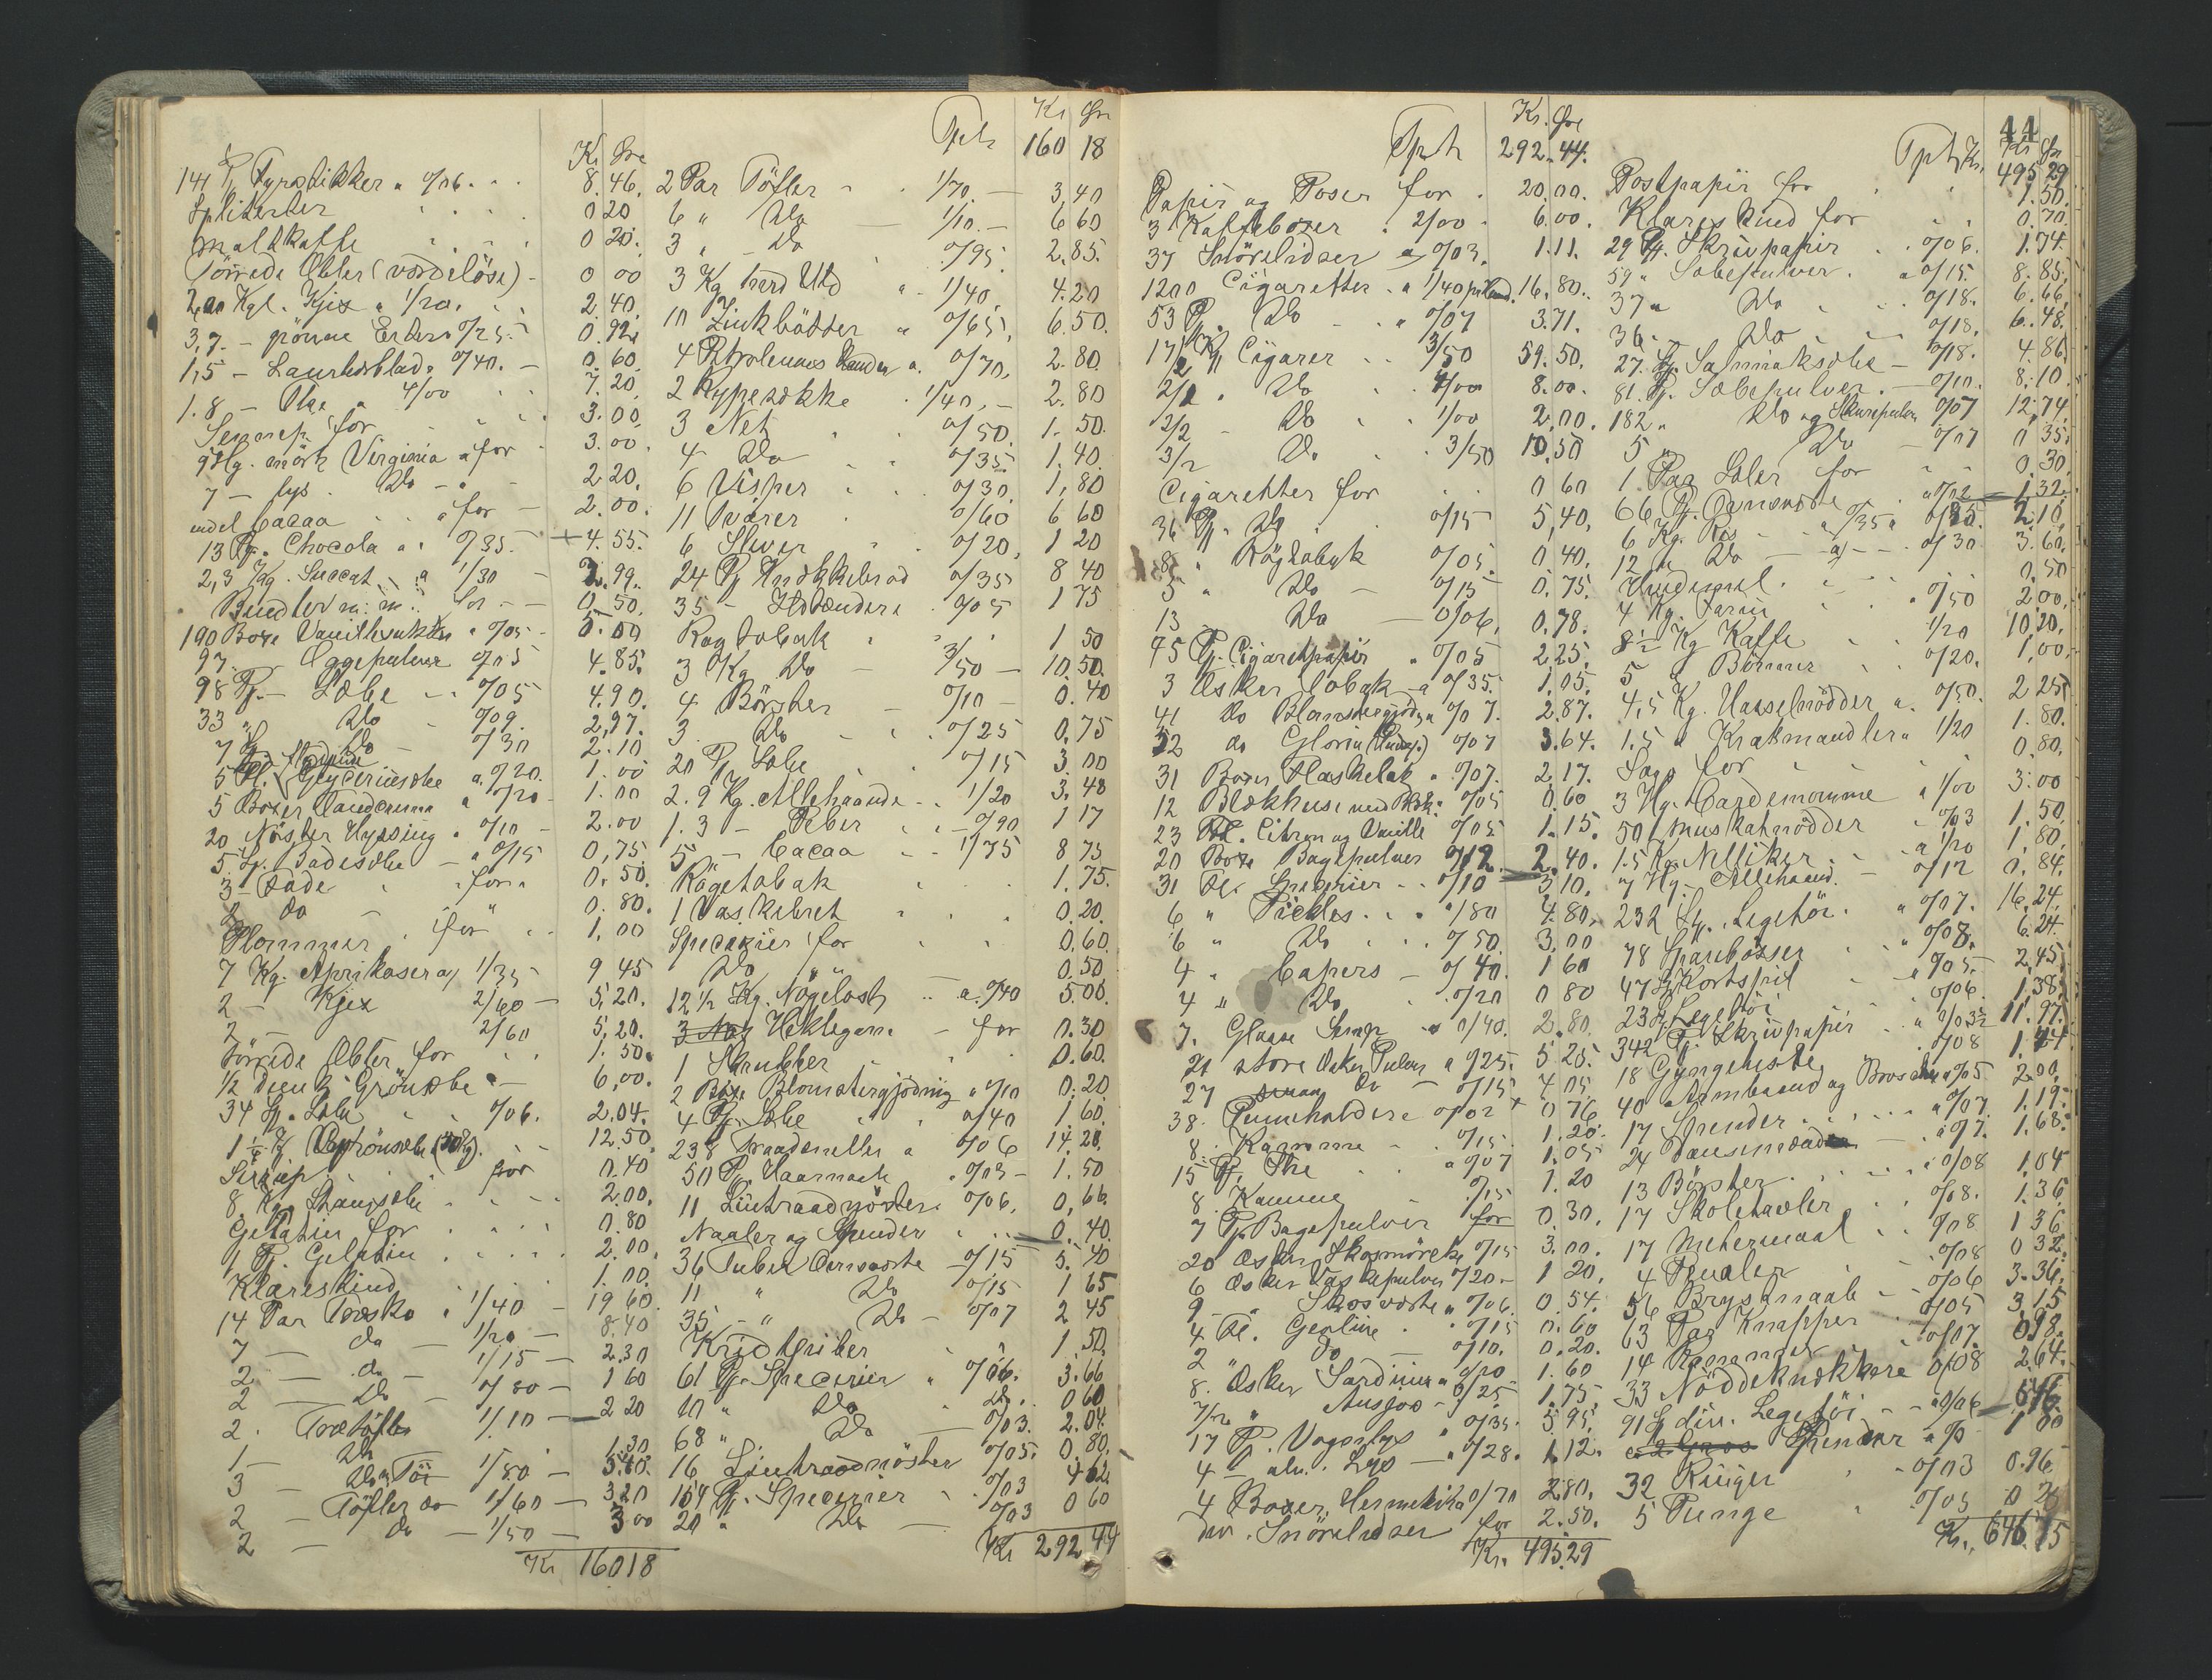 Kr Øre
141 Pk Fyrstikker a 0/06. 8.46.
Spliterter 0 20
Maltkaffe 0 20.
Tørrede Æbler (værdiløse) - 0 00
2,00 Kgl. Kjex a 1/20. 2.40.
3,7. - grønne Erter 0/25. 0.92.
1,5 - Laurbærblad a 0/40. - 0.60
1.8 - The a 4/00 7.20.
Sennep for 3.00.
9 Hg. mörk Virginia a for 3.00
7 - lys. Do - 2 20.
endel Cacao a for - 2.00.
13 Pk. Chocola a 0/35. + 4.55.
2,3 Kg. Succat a 1/30 - 2.99.
Bendler m. m. for - - 0.50.
190 Boxe Vanillesukker a 0/05 - 5.00
97 - Eggepulver 0/05 4.85.
98 Pk. - Sæbe 0/05 4.90.
33 " Do 0/09. 2,97.
7 Do - 0/30 2.10
flydende
5 Fl. Glycerinsæbe a 0/20. 1.00
5 Boxer Tandcreme a 0/20 - 1.00
20 Nøster Hyssing a 0/10 - 2.00
5 St. Badesæbe - a 0/15 0,75
3 - Fade for 0.50.
2 do - 0.80.
Plommer for 1.00
7 Kg. Aprikoser a 1/35 9 45
2 - Kjex 2/60 - 5,20.
2 - 2/60 5,20.
tørrede Æbler for 1.50.
1/2 Dunk Grønsæbe - 6,00.
34 St. Sæbe 0/06. 2.04.
12.50.
Sirup for 0.40
8. Kg. Stangsæbe 2.00.
Gelatin for 0.80
1 Pk. Gelatin 2.00.
Klareskind 1.00.
14 Par Træsko a 1/40 - 19 60.
7 - do - 1/20 - 8.40
2 - do - 1/15 - 2.30
2 - Do - 0/80 - 1 60
2. Trætøfler 1/10 - 2 20
1 - Do 1.30
3 - Do Töi 1/80 - 5.40.
2 - Töfler do 1/60 - 3 20
2 - do - 1/50 - 3 00
Kr 160 18
Kr Øre
Tpt 160 18
2 Par Töfler 1/70 - 3,40
6 " Do - 1/10. - 6 60
3 " Do 0/95. 2.85.
3 Kg hærd Uld 1/40 4.20
10 Zinkbötter a 0/65. 6.50.
4 Petroleums Kander a. 0/70. 2.80.
2 Rypesække 1/40. - 2.80
3 Net 0/50. 1.50.
4 Do 0/35. 1.40.
6 Visper 0/30. 1,80
11 Tvarer 0/60 6 60
6 Slever 0/20. 1 20
24 Pk Knækkebrød 0/35 8 40
35 - Ildtændere 0/05 1 75
Røgtobak 1 50
3 Kg Do - 3/50 - 10.50.
4 Börster - 0/10 - 0.40
3 Do 0/25 0,75
20 Pk Sæbe 0/15 3.00
2.9 Kg. Allehaande 1/20 3.48
1.3 - Peber 0/90 1 17
5 - Cacao 1/75 8 75
Røgetobak 1.75.
1 Vaskebret 0.20.
Specerier for 0.60.
Do 0.50
12 1/2 Kg. Nøgelost a. 0/40 5.00.
Heklegarn - for 0.30
1 Skrubber 0.60.
2 Boxe Blomstergjødning a 0/10 0.20
4 Pk. Sæbe a 0/40 1.60.
238 Traadsneller a 0/06 14.28.
50 Pk. Haarnaale a 0/03 - 1.50
11 Lintraadnøster 0/06. 0,66.
Naaler og Spender 0.40.
36 Tuber Ovnsværte - 0/15 5.40
11 " Do 0/15 1 65
35 - " Do - 0/07 2 45
Kridtpiber 1.50
61 Pk. Specerier a 0/06. 3.66
10 " Do Do. 0 60
68 " Do - 0/03. 2.04
16 Lintraadnøster 0/05. 0.80.
154 Pk. Specerier 0/03 4 62
20 " Do - 0/03 0 60
Kr 292 44
Kr. Øre
Tpt 292.44.
Papir og Poser for 20.00.
3 Kaffeboxer 2/00. 6.00.
37 Snörelidser a 0/03. 1.11.
1200 Cigaretter a 1/40 pr Hund. 16.80.
53 Pk. Do a 0/07 3.71.
17/2 Ks Cigarer 3/50 59.50.
2/2 " Do 4/00 8.00.
2/2 - Do 1/00 2.00.
3/2 Do 3/50 10.50
Cigaretter for 0 60
36 Pk. Do 0/15 5,40.
8 " Røgtobak 0/05. 0.40.
5 " Do - 0/15 0.75.
13 - Do - 0/06. 0.78.
45 Pk. Cigaretpapir a 0/05 2.25.
3 Æsker Tobak a 0/35. 1.05.
41 do Blomstergjødn. a 0/07. 2.87.
52 do Gloria (Pudsep.) 0/07 3.64.
31 Boxer Flaskelak a 0/07. 2.17.
12 Blækhuse med Blæk a 0/05 0.60
23 Fl. Citron og Vanille 0/05 1.15.
20 Boxe Bagepulver 0/12 2.40.
31 Fl. Specerier 0/10 3 10.
6 " Pickles a 0/80 4.80.
6 " Do 0/50. 3.00
4 " Capers - 0/40. 1 60
4 " Do 0/20 0 80
7. Glasse Senep a 0/40. 2.80
21 store Æsker Pulver a 0/25. 5 25.
27 smaa do - 0/15 4 05.
38. Penneholdere 0/02 0 76
8. Kamme 0/15. 1.20.
15 Pk. The a 0/07 1.05
8. Kamme - 0/15 1.20
7 Pk Bagepulver for 0.30.
20 Æsker Skosmörelse 0/15 3.00.
6 Æsker Vaskepulver 0/20 - 1 20.
9 - " Skosværte a 0/06. 0.54.
4 Fl. Geoline 0/15 0.60
2 " do - 0/10. 0.20.
8. Æsker Sardiner a 0/20 1.60
7/12 " Ansjos - 0/25 1.75.
17 Pk. Vognlys a 0/35. 5 95.
4 - alm. Lys - a 0/28. 1.12.
4 Boxer Hermetika 0/70 2.80.
Div. Snörelidser for 2.50.
Kr. 495.29
44
Kr Øre
Tpt Kr. 495 29
Postpapir for 1.50.
Klareskind for 0.70.
29 Pk. Skrivpapir 0/06. 1.74.
59 " Sæbepulver. a 0/15 8.85.
37 " Do 0/18. 6.66
36 - Do 0/18. 6.48.
27. St. Salmiaksæbe - 0/18. 4.86.
81. Pk. Sæbepulver. - 0/10. 8.10
182 " Do og Skurepulver 0/07 12.74.
5 " Do - 0/07 0 35.
1 Par Saaler for 0.30.
66 Pk. Ovnsværte a 0/02 1.32.
6 Kg. Ris a 0/35 2.10.
12 " Do - a - 0/30 3.60.
Hvedemel 0.50
4 Kg. Farin a 0/50 2.00.
8 1/2 Kg Kaffe 1/20 10.20.
5 " Bönner 0/20. 1,00.
4,5 Kg. Hasselnødder a. 0/50. 2 25
1.5 " Krakmandler a 1/20 1.80.
Sago for 0.80.
3 Hg. Cardemomme a 1/00 3.00
50 Muskatnødder a 0/03 1.50
1.5 Kg. Nelliker a 1/20 1,80
7 Hg - Allehaand. - 0/12 0.84.
232 St. Legetøi. a 0/07. 16.24.
78 Sparebøsser a 0/08. 6.24.
47 Kortspil a 0/05. 2.45
23 St Legetøi 0/06. 1.38.
342 Pk. Skrivpapir a 0/03 1/2 11.97.
18 Gyngeheste 0/08 1.44
40 Armbaand og Broscher a 0/05 2.00.
17 Spender a 0/07. 1.19.
24 Dansemænd a 0/07. 1.68.
13 Børster a 0/08 1.04
17 Skoletavler 0/08. 1.36
17 Metermaal 0/08 1 36
4 Penaler 0/08 0 32.
56 Brystnaale - 0/06 3.36.
63 Par Knapper 0/05 3.15
14 Rammer 0/07. 0.98.
33 Nøddeknækkere 0/08 2.64.
91 St div. Legetøi - a 0/06 5.46.
Spender 1 00
32 Ringer - 0/03 0.96
5 Punge 0/05 0 25
Kr. 646.75